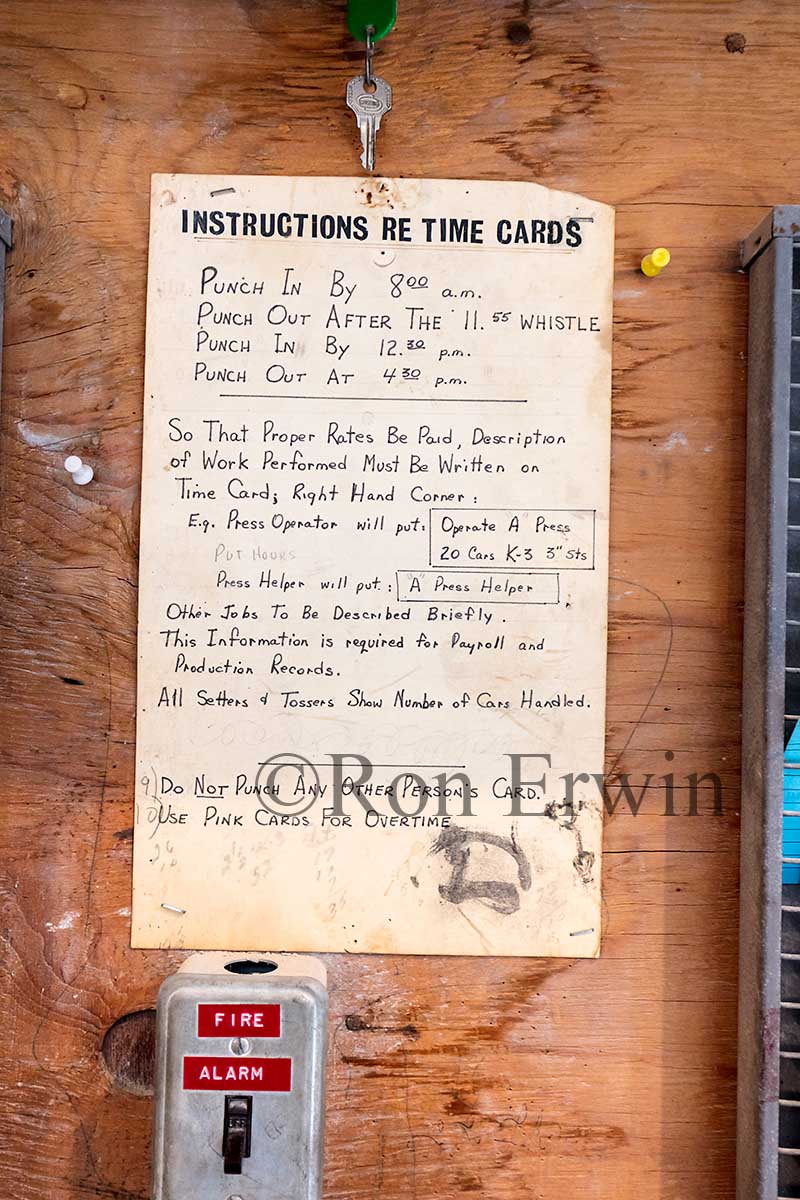 INSTRUCTIONS RE TIME CARDS
PUNCH IN BY 8:00 a.m.
PUNCH OUT AFTER THE 11.55 WHISTLE
PUNCH IN BY 12.30 p.m.
PUNCH OUT AT 4 30 p.m.
So That Proper Rates Be Paid, Description
of Work Performed Must Be Written on
Time Card; Right Hand Corner:
E.g. Press Operator will put: Operate "A" Press
20 Cars K-3 3" Sts
PUT HOURS
Press Helper will put: "A" Press Helper
Other Jobs To Be Described Briefly.
This Information is required for Payroll and
Production Records.
All Setters & Tossers Show Number of Cars Handled.
9) DO NOT PUNCH ANY OTHER PERSON'S CARD.
10) USE PINK CARDS FOR OVERTIME
©Ron Erwin
FIRE
ALARM